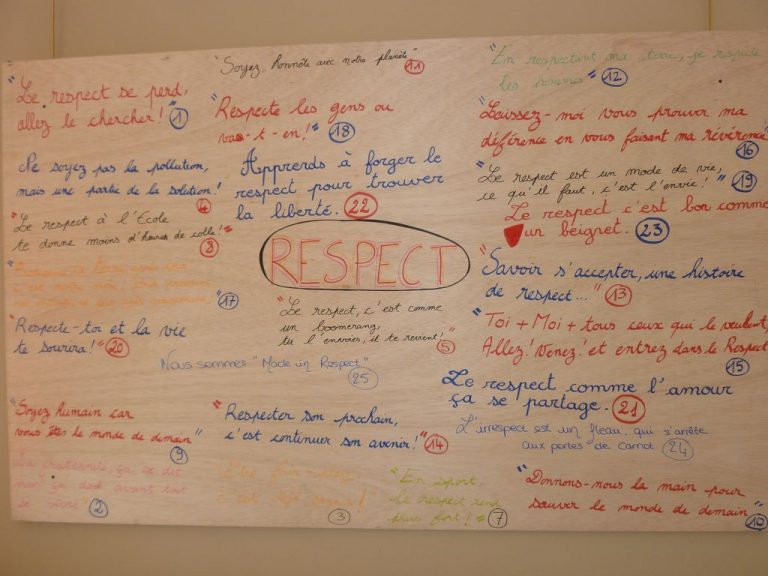 "Le respect se perd,
allez le chercher!" 1
"Soyez honnête avec notre planète" 11
"En respectant ma tenue, je respecte
les sommes" 12
"Respecte les gens ou
vas-t-en!" 18
"Laissez-moi vous prouver ma
déférence en vous faisant ma révérence"
16
Ne soyez pas la pollution,
mais une partie de la solution!
4
Apprends à forger le
respect pour trouver
la liberté. 22
"Le respect est un mode de vie,
ce qu'il faut, c'est l'envie!" 19
Le respect c'est bon comme
un beignet. 23
"Le respect à l'École
te donne moins d'heures de colle!"
8
RESPECT
17
"Savoir s'accepter, une histoire
de respect..." 13
"Le respect, c'est comme
un boomerang,
tu l'envoies, il te revient!" 5
Respecte-toi et la vie
te sourira!" 20
"Toi + Moi + tous ceux qui le veulent,
Allez! Venez! et entrez dans le Respect
15
Nous sommes "Made in Respect"
25
Le respect comme l'amour
ça se partage. 21
"Soyez humain car
vous êtes le monde de demain"
9
"Respecter son prochain,
c'est continuer son avenir!" 14
L'irrespect est un fléau, qui s'arrête
aux portes de Carnot 24
La fraternité, ça se dit
mais ça doit avant tout
se vivre" 2
3
"En sport,
le respect rend
plus fort!" 7
"Donnons-nous la main pour
sauver le monde de demain"
10